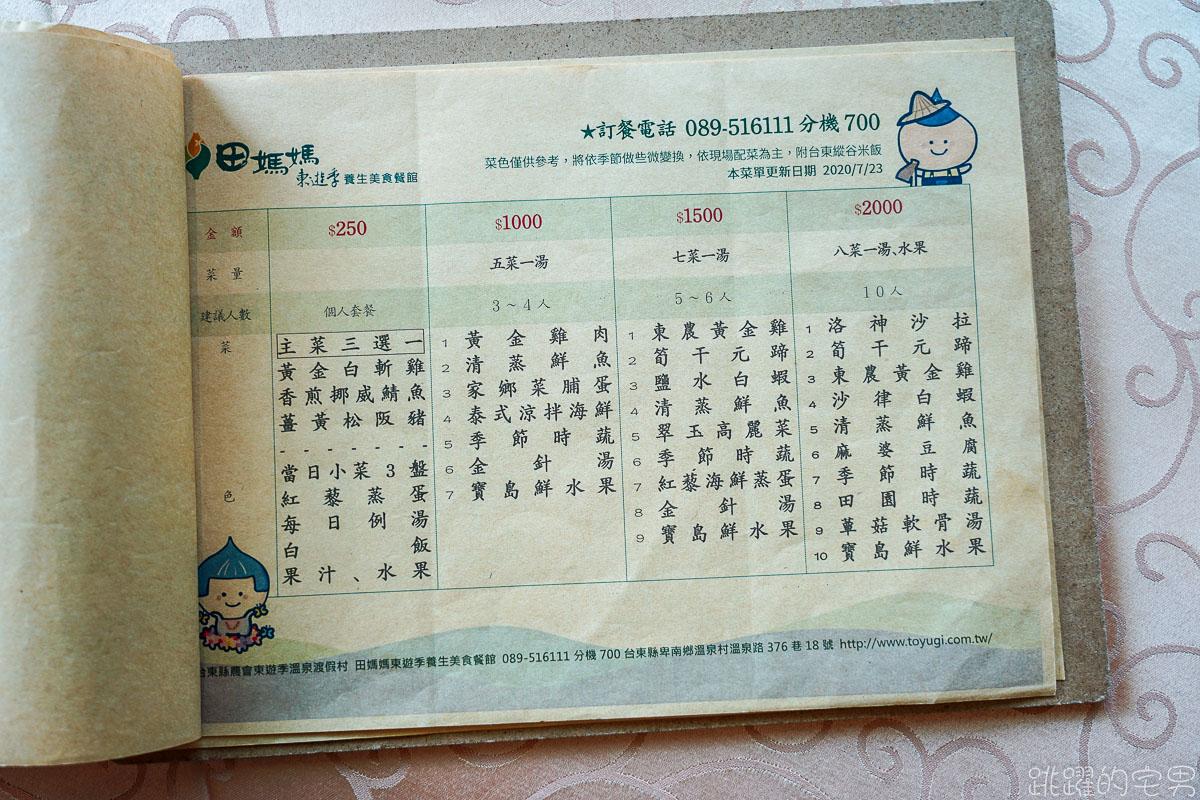 田媽媽
東遊季養生美食餐館
★訂餐電話 089-516111 分機 700
菜色僅供參考，將依季節做些微變換，依現場配菜為主，附台東縱谷米飯
本菜單更新日期 2020/7/23
金額 $250 $1000 $1500 $2000
菜量 五菜一湯 七菜一湯 八菜一湯、水果
建議人數 個人套餐 3～4人 5～6人 10人
菜色
主菜三選一
黃金白斬雞
香煎挪威鯖魚
薑黃松阪豬
- - - - - - -
當日小菜3盤
紅藜蒸蛋
每日例湯
白飯
果汁、水果
1 黃金雞肉
2 清蒸鮮魚
3 家鄉菜脯蛋
4 泰式涼拌海鮮
5 季節時蔬
6 金針湯
7 寶島鮮水果
1 東農黃金雞
2 筍干元蹄
3 鹽水白蝦
4 清蒸鮮魚
5 翠玉高麗菜
6 季節時蔬
7 紅藜海鮮蒸蛋
8 金針湯
9 寶島鮮水果
1 洛神沙拉
2 筍干元蹄
3 東農黃金雞
4 沙律白蝦
5 清蒸鮮魚
6 麻婆豆腐
7 季節時蔬
8 田園時蔬
9 蕈菇軟骨湯
10 寶島鮮水果
台東縣農會東遊季溫泉渡假村 田媽媽東遊季養生美食餐館 089-516111 分機 700 台東縣卑南鄉溫泉村溫泉路 376 巷 18 號 http://www.toyugi.com.tw/
跳躍的宅男